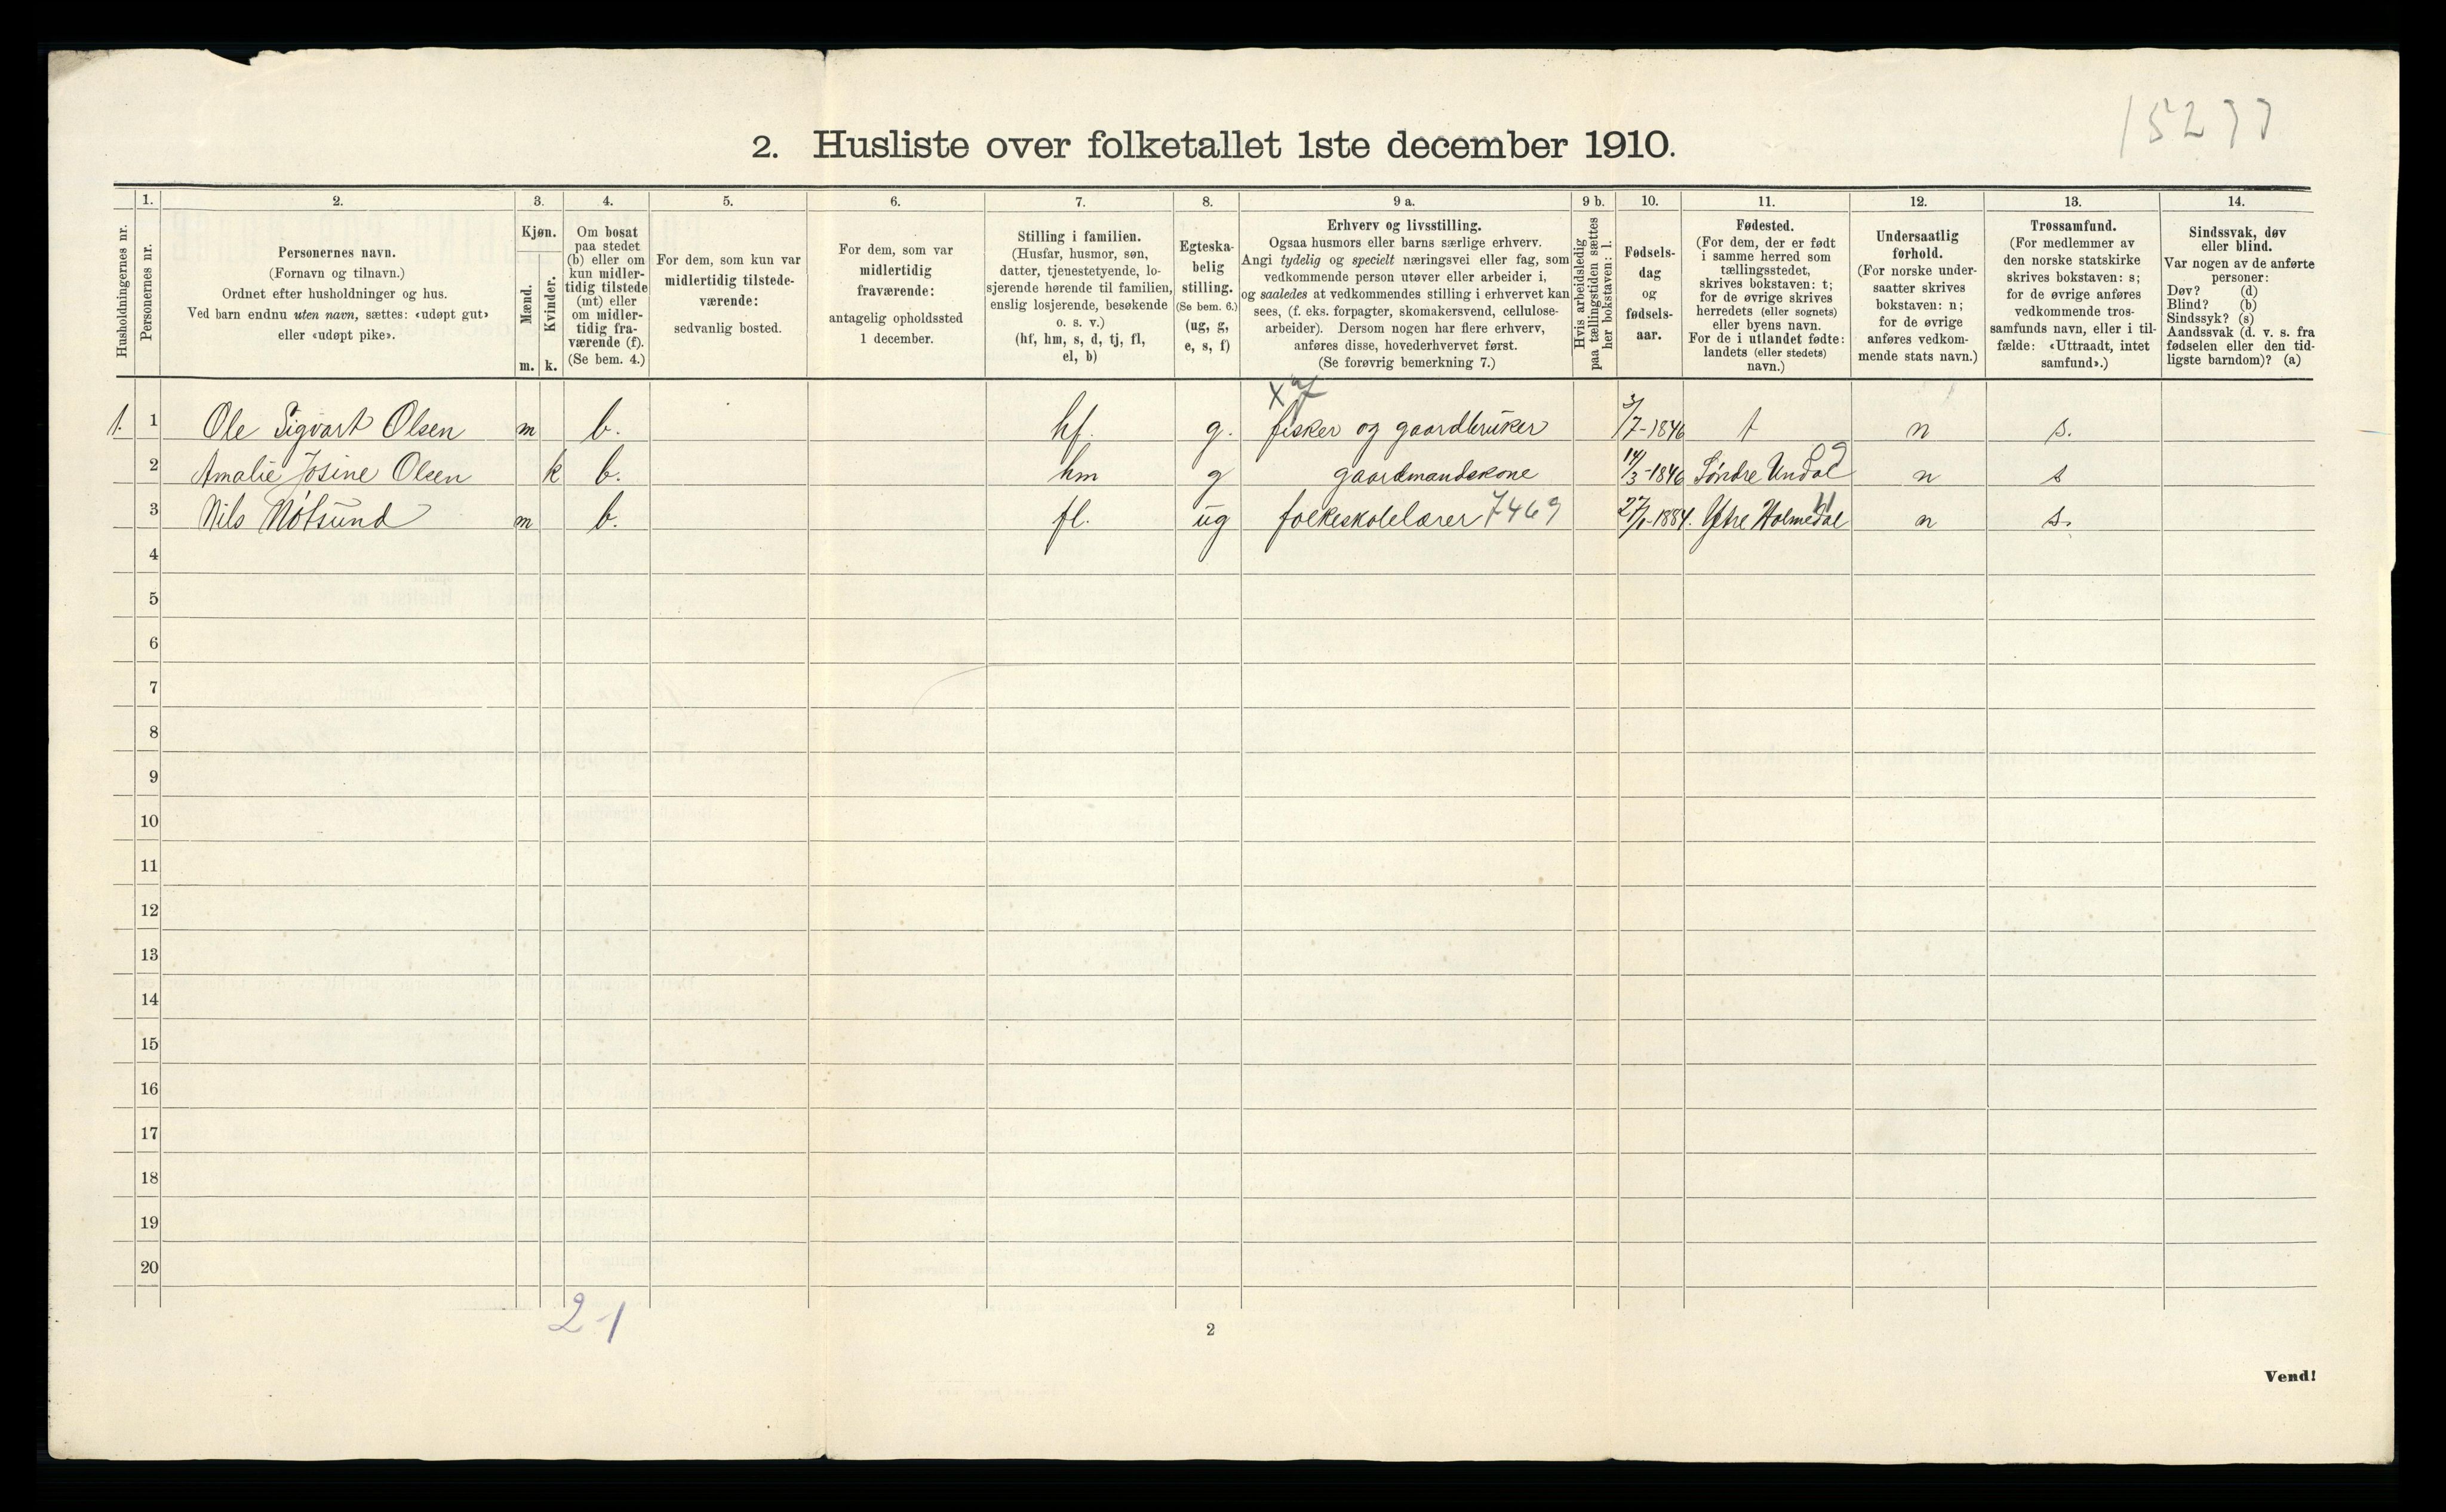 15277
2. Husliste over folketallet 1ste december 1910.
1. 2. 3. 4. 5. 6. 7. 8. 9 a. 9 b. 10. 11. 12. 13. 14.
Husholdningernes nr.
Personernes nr.
Personernes navn.
(Fornavn og tilnavn.)
Ordnet efter husholdninger og hus.
Ved barn endnu uten navn, sættes: «udøpt gut»
eller «udøpt pike».
Kjøn.
Mænd.
Kvinder.
m. k.
Om bosat
paa stedet
(b) eller om
kun midler-
tidig tilstede
(mt) eller
om midler-
tidig fra-
værende (f).
(Se bem. 4.)
For dem, som kun var
midlertidig tilstede-
værende:
sedvanlig bosted.
For dem, som var
midlertidig
fraværende:
antagelig opholdssted
1 december.
Stilling i familien.
(Husfar, husmor, søn,
datter, tjenestetyende, lo-
sjerende hørende til familien,
enslig losjerende, besøkende
o. s. v.)
(hf, hm, s, d, tj, fl,
el, b)
Egteska-
belig
stilling.
(Se bem. 6.)
(ug, g,
e, s, f)
Erhverv og livsstilling.
Ogsaa husmors eller barns særlige erhverv.
Angi tydelig og specielt næringsvei eller fag, som
vedkommende person utøver eller arbeider i,
og saaledes at vedkommendes stilling i erhvervet kan
sees, (f. eks. forpagter, skomakersvend, cellulose-
arbeider). Dersom nogen har flere erhverv,
anføres disse, hovederhvervet først.
(Se forøvrig bemerkning 7.)
Hvis arbeidsledig
paa tællingstiden sættes
her bokstaven: l.
Fødsels-
dag
og
fødsels-
aar.
Fødested.
(For dem, der er født
i samme herred som
tællingsstedet,
skrives bokstaven: t;
for de øvrige skrives
herredets (eller sognets)
eller byens navn.
For de i utlandet fødte:
landets (eller stedets)
navn.)
Undersaatlig
forhold.
(For norske under-
saatter skrives
bokstaven: n;
for de øvrige
anføres vedkom-
mende stats navn.)
Trossamfund.
(For medlemmer av
den norske statskirke
skrives bokstaven: s;
for de øvrige anføres
vedkommende tros-
samfunds navn, eller i til-
fælde: «Uttraadt, intet
samfund».)
Sindssvak, døv
eller blind.
Var nogen av de anførte
personer:
Døv? (d)
Blind? (b)
Sindssyk? (s)
Aandssvak (d. v. s. fra
fødselen eller den tid-
ligste barndom)? (a)
1. 1 Ole Sigvart Olsen m b. hf. g. fisker og gaardbruker 3/7-1846 t n s.
2 Amalie Josine Olsen k b. hm g gaardmandskone 14/3-1846 Söndre Undal n s
3 Nils Nótsund m b. fl. ug folkeskolelærer 7469 27/1-1884. Ytre Holmedal n s.
4
5
6
7
8
9
10
11
12
13
14
15
16
17
18
19
20
2-1
2
Vend!